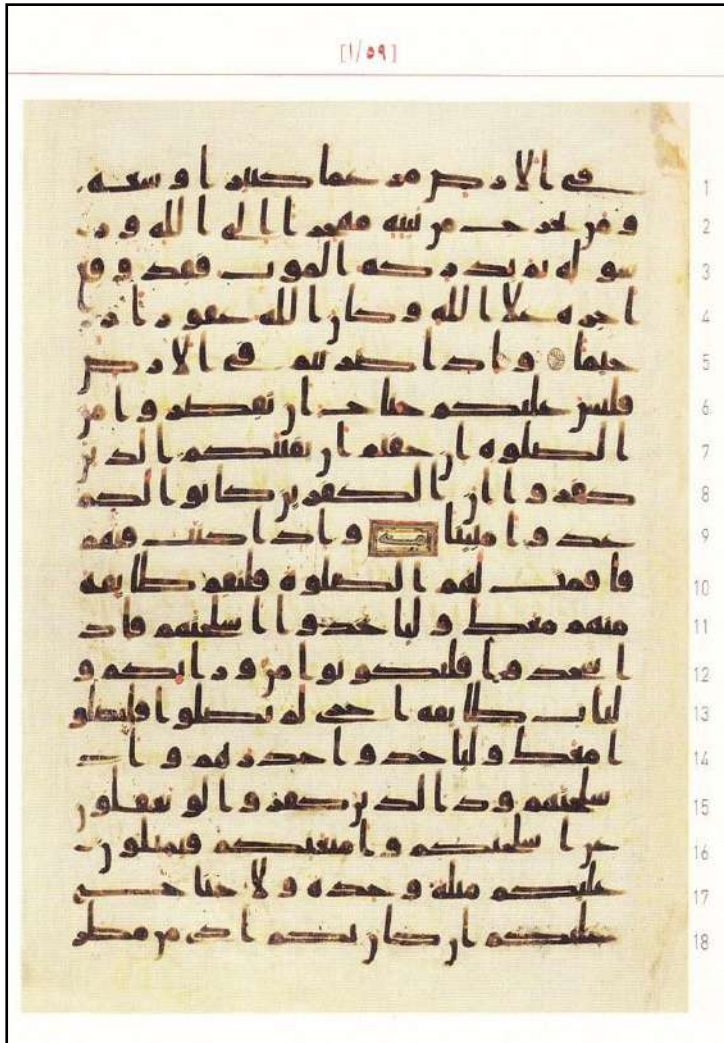 [١/٥٩]
1 في الارض مرغما كثيرا وسعه
2 ومن يخرج من بيته مهجرا الى الله ور
3 سوله ثم يدركه الموت فقد وقع
4 اجره على الله وكان الله غفورا ر
5 حيما واذا ضربتم في الارض
6 فليس عليكم جناح ان تقصروا من
7 الصلوه ان خفتم ان يفتنكم الذين
8 كفروا ان الكفرين كانوا لكم
9 عدوا مبينا مية واذا كنت فيهم
10 فاقمت لهم الصلوه فلتقم طايفه
11 منهم معك ولياخذوا اسلحتهم فاذ
12 ا سجدوا فليكونوا من ورايكم و
13 لتات طايفه اخرى لم يصلوا فليصلو
14 ا معك ولياخذوا حذرهم وا
15 سلحتهم ود الذين كفروا لو تغفلون
16 عن اسلحتكم وامتعتكم فيميلون
17 عليكم ميله وحده ولا جناح
18 عليكم ان كان بكم اذى من مطر